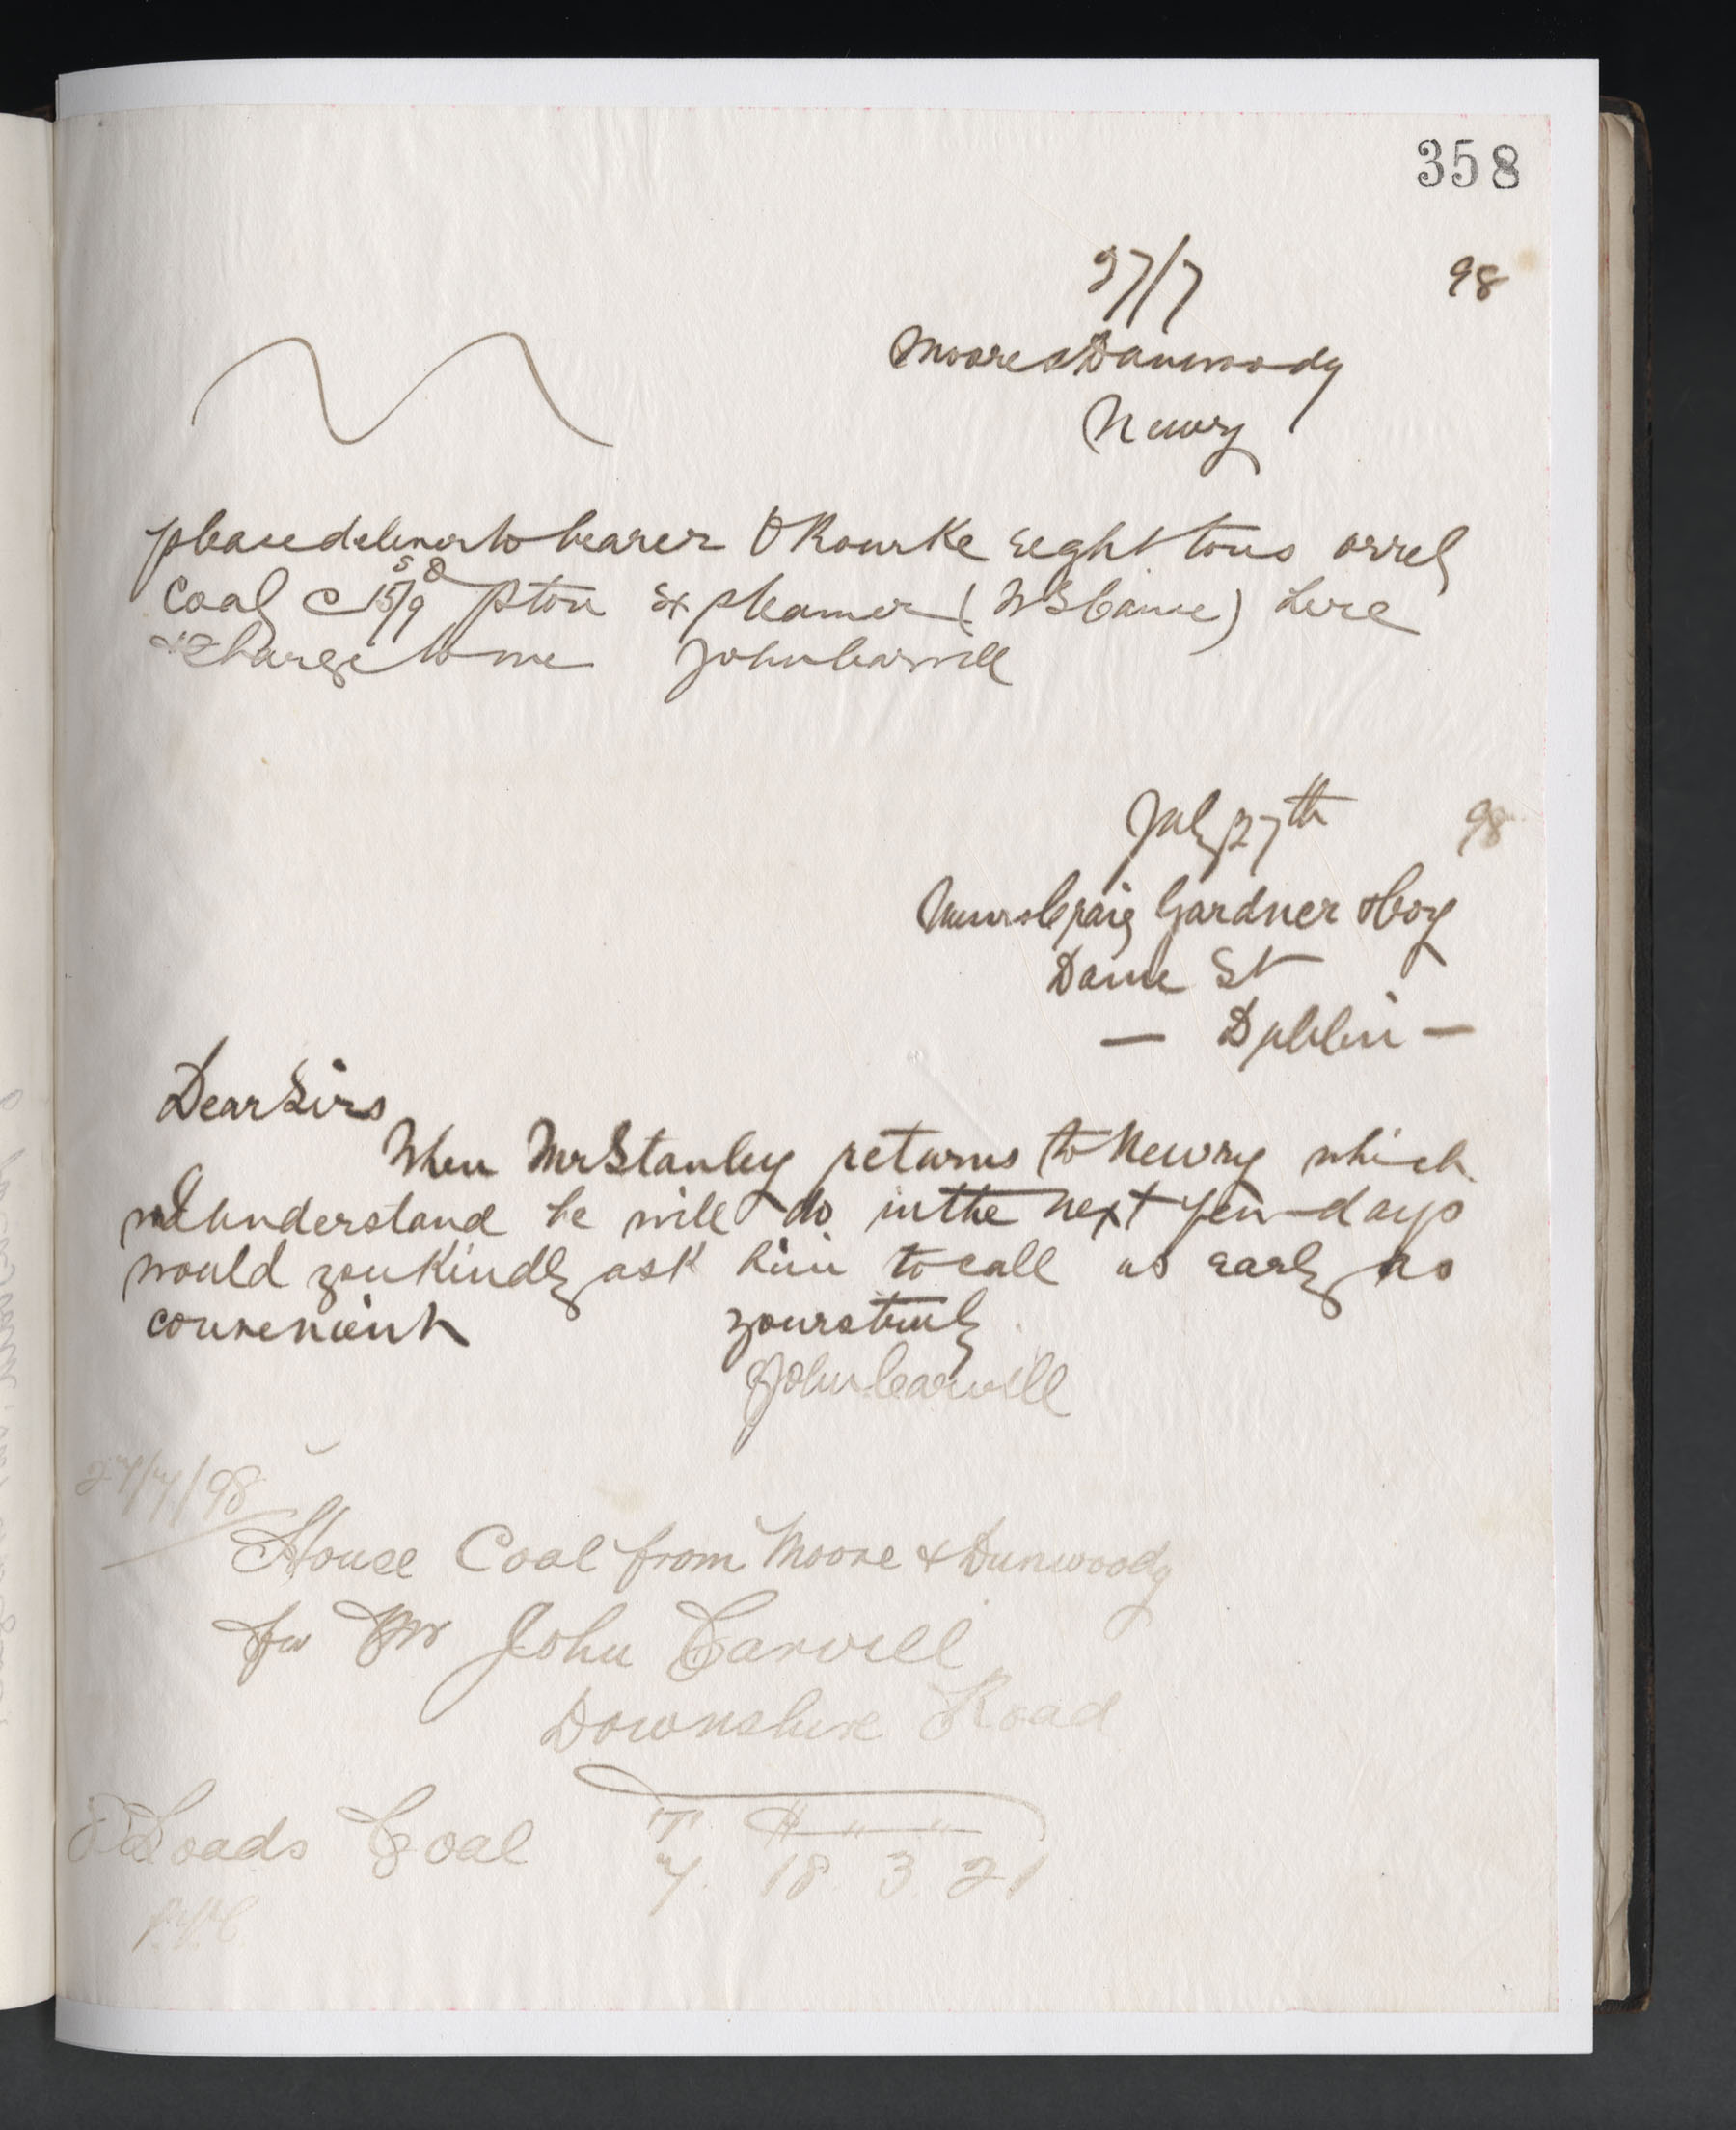 358
27/7 98
Moore & Dunwoody
Newry
please deliver to bearer O Rourke eight tons orrel
Coal @ 15/9 s d p ton Ex steamer (W S Caine) here
& charge to me John Carvill
July 27th 98
Messrs Craig Gardner & Coy
Dame St
— Dublin —
Dear Sirs
When Mr Stanley returns to Newry which
I understand he will do in the next few days
would you kindly ask him to call as early as
convenient yours truly
John Carvill
27/7/98
House Coal from Moore & Dunwoody
for Mr John Carvill
Downshire Road
8 Loads Coal T " " "
7. 18 3 21